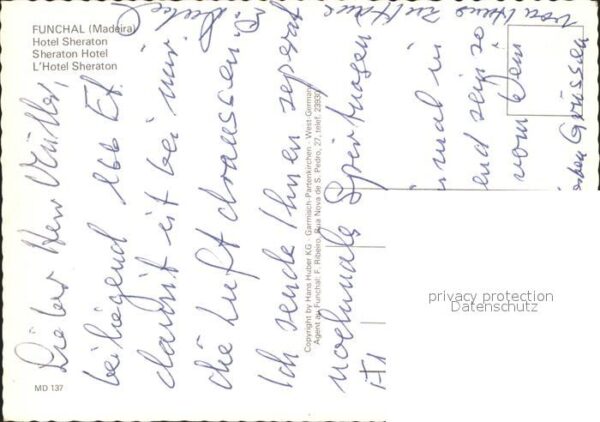 FUNCHAL (Madeira)
Hotel Sheraton
Sheraton Hotel
L'Hotel Sheraton
Lieber Herr Müller,
beiliegend 166 Et.
damit ist bei mir
die Luft draussen.
Ich sende Ihnen separat
nochmals
mal in
end sein so
vom
von Haus zu Haus
Grüssen
Copyright by Hans Huber KG - Garmisch-Partenkirchen - West-Germany
Agent au Funchal: F. Ribeiro, Rua Nova de S. Pedro, 27, telef. 23930
MD 137
privacy protection
Datenschutz